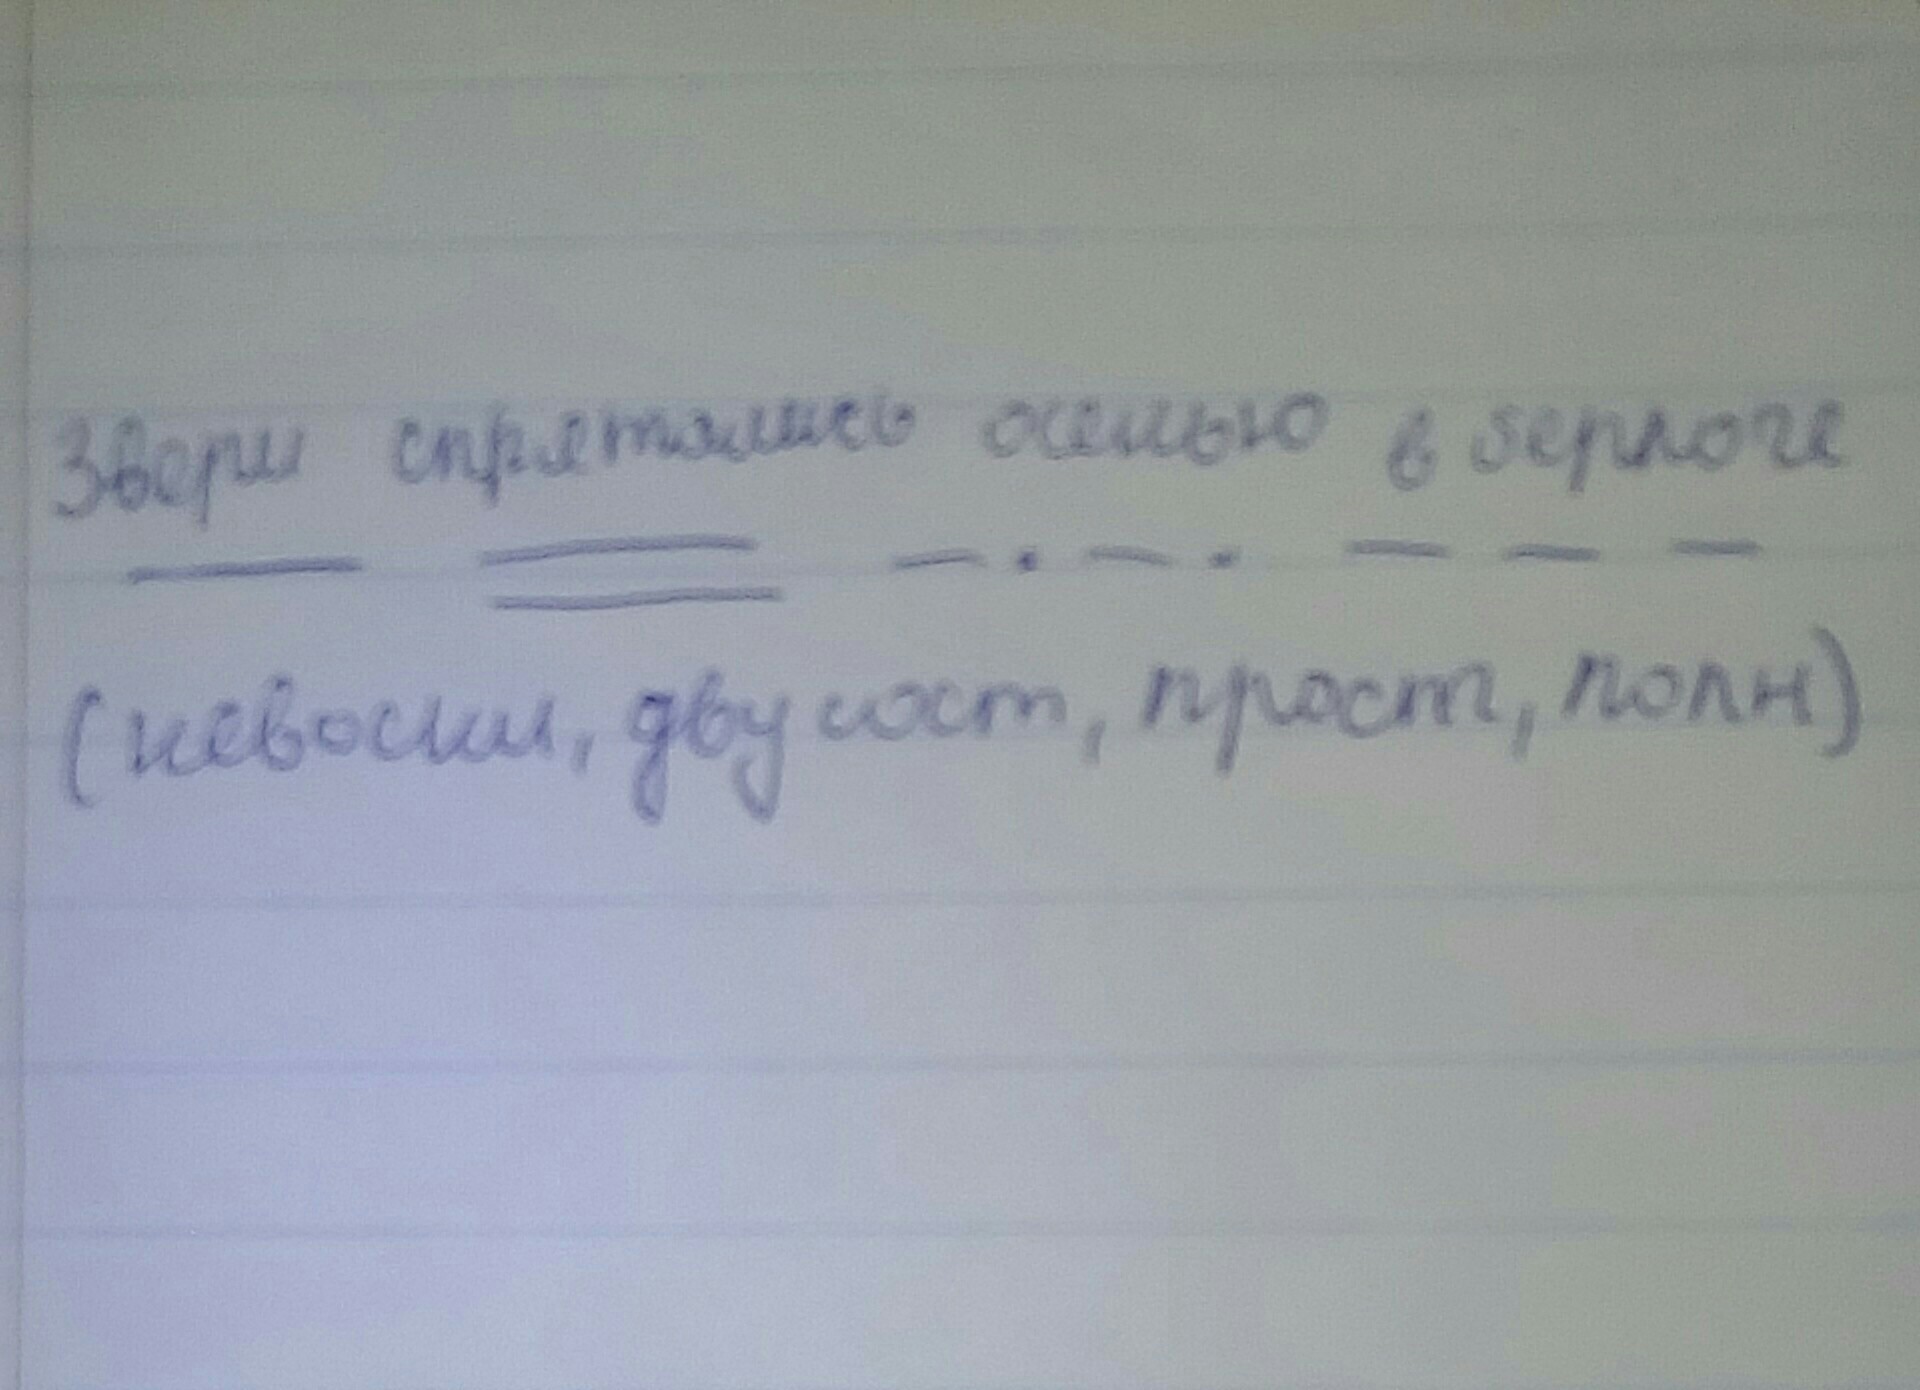 Звери спрятались осенью в берлоге
(невоскл, двусост, прост, полн)